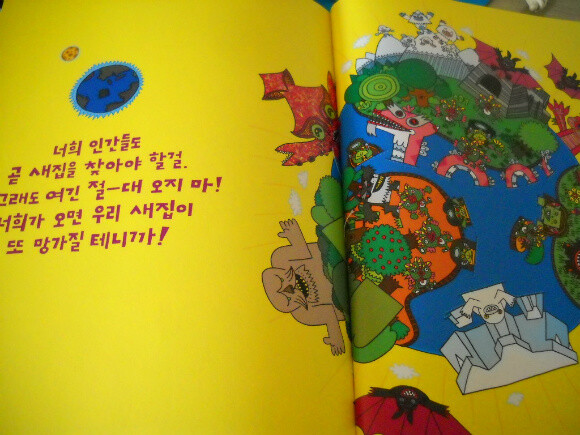 너희 인간들도
곧 새집을 찾아야 할걸.
그래도 여긴 절-대 오지 마!
너희가 오면 우리 새집이
또 망가질 테니까!